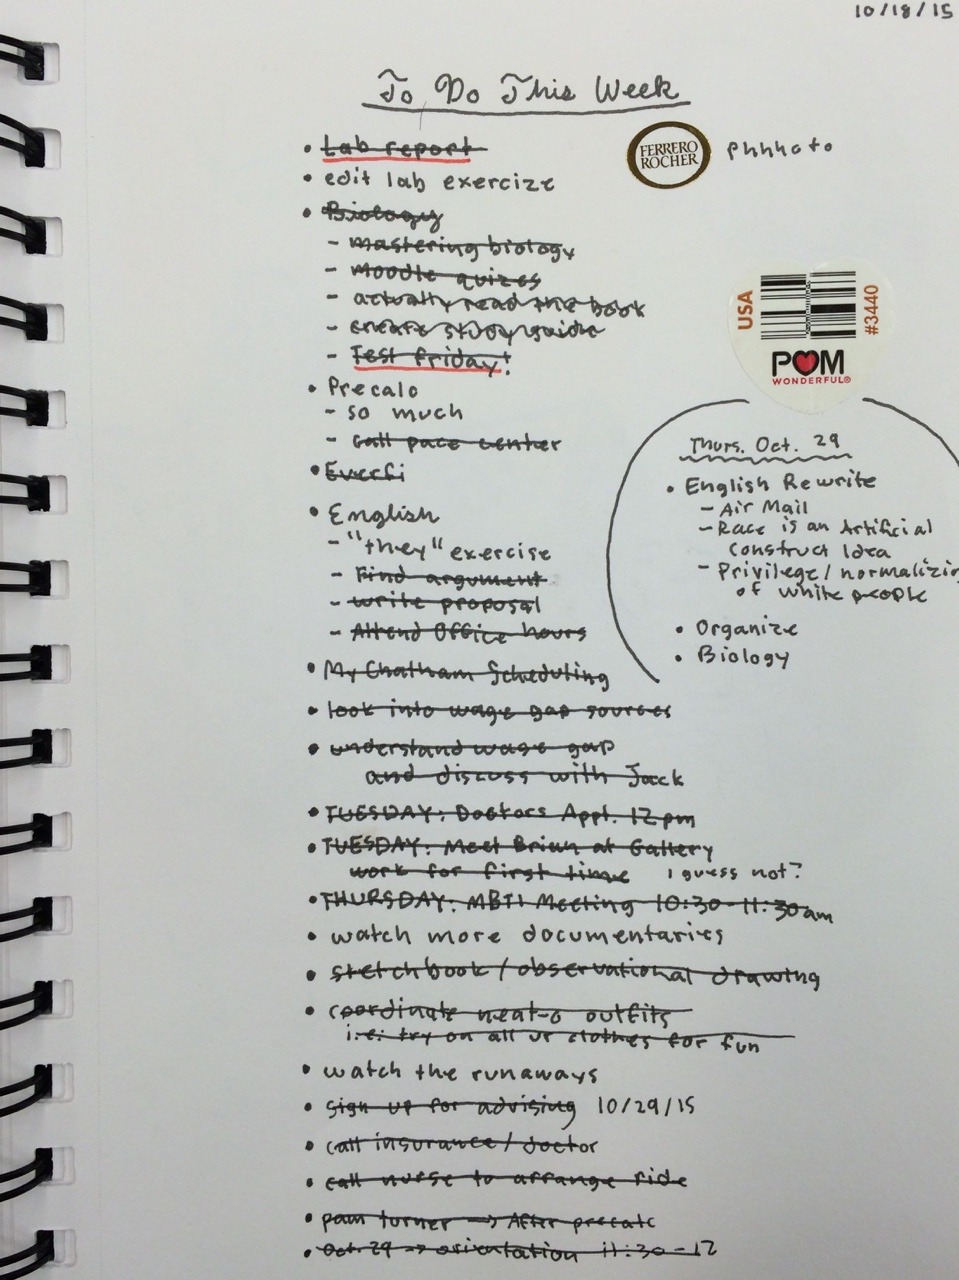 10/18/15
To Do This Week
• Lab report
FERRERO
ROCHER
phhhoto
• edit lab exercize
• Biology
- mastering biology
- moodle quizes
- actually read the book
- create study guide
- Test friday!
USA
#3440
POM
WONDERFUL®
• Precalc
- so much
- call pace center
• Everfi
• English
- "they" exercise
- Find argument
- write proposal
- Attend Office hours
Thurs. Oct. 29
• English Rewrite
- Air Mail
- Race is an Artificial
construct Idea
- Privilege/normalizing
of white people
• Organize
• Biology
• My Chatham Scheduling
• look into wage gap sources
• understand wage gap
and discuss with Jack
• TUESDAY: Doctors Appt. 12pm
• TUESDAY: Meet Brian at Gallery
work for first time i guess not?
• THURSDAY: MBTI Meeting 10:30-11:30am
• watch more documentaries
• sketchbook/observational drawing
• coordinate neat-o outfits
i.e: try on all ur clothes for fun
• watch the runaways
• sign up for advising 10/29/15
• call insurance/doctor
• call nurse to arrange ride
• pam turner → After precalc
• Oct. 29 → orientation 11:30-12